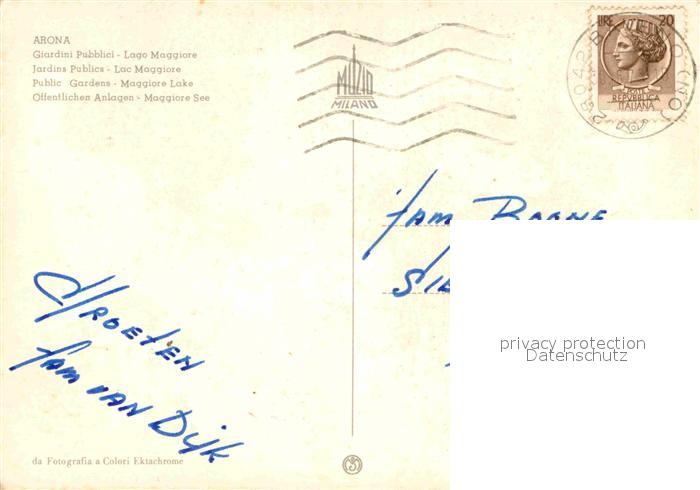 ARONA
Giardini Pubblici - Lago Maggiore
Jardins Publics - Lac Maggiore
Public Gardens - Maggiore Lake
Öffentlichen Anlagen - Maggiore See
MOZIO
MILANO
LIRE 20
POSTE
REPVBBLICA
ITALIANA
28042
fam Boone
privacy protection
Datenschutz
Groeten
fam van Dijk
da Fotografia a Colori Ektachrome